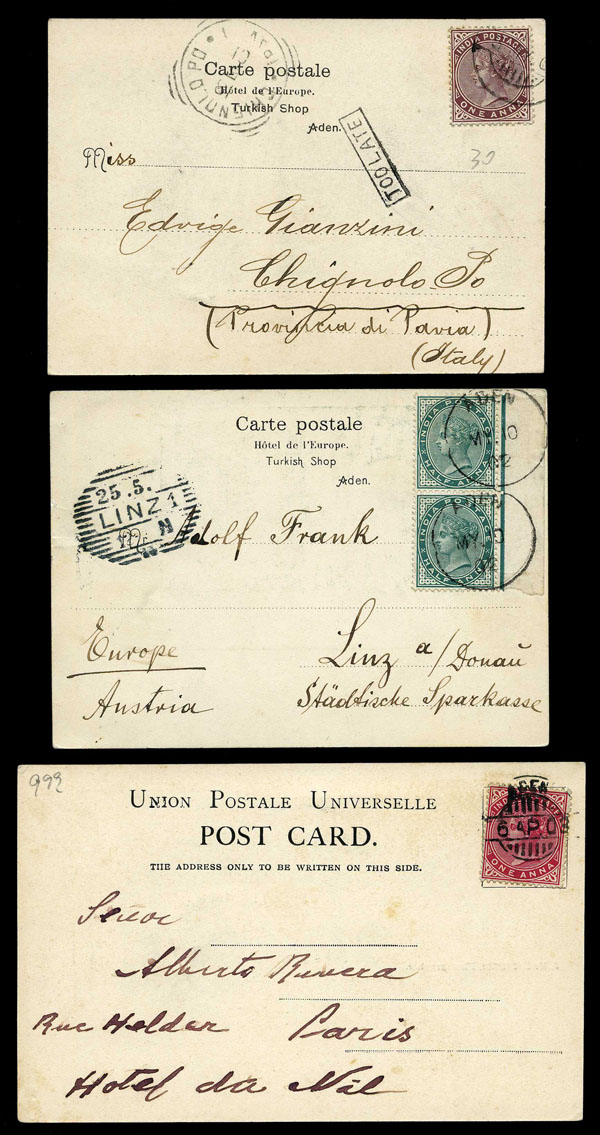 Carte postale
Hôtel de l'Europe.
Turkish Shop
Aden.
INDIA POSTAGE
ONE ANNA
CHIGNOLO PO
TOO LATE
30
Miss
Edvige Gianzini
Chignolo Po
(Provincia di Pavia)
(Italy)
Carte postale
Hôtel de l'Europe.
Turkish Shop
Aden.
INDIA POSTAGE
HALF ANNA
ADEN
MY 10
02
INDIA POSTAGE
HALF ANNA
ADEN
MY
02
25.5.
LINZ 1
N
Mr. Adolf Frank
Europe
Linz a/Donau
Austria
Städtische Sparkasse
992
UNION POSTALE UNIVERSELLE
POST CARD.
THE ADDRESS ONLY TO BE WRITTEN ON THIS SIDE.
ADEN
6 AP 03
ONE ANNA
Señor
Alberto Rivera
Rue Helder Paris
Hotel da Nil